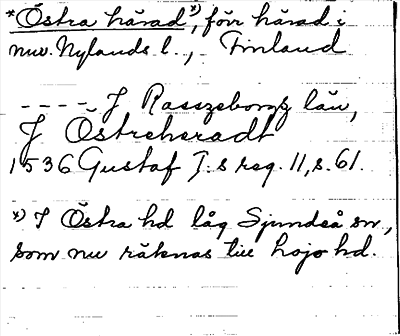 *Östra härad,*) förr härad i
nuv. Nylands l., Finland
---- J Rasszeborgz län,
J Östreheradt
1536 Gustaf I:s reg. 11, s. 61.
*) I Östra hd låg Sjundså sn,
som nu räknas till Lojo hd.